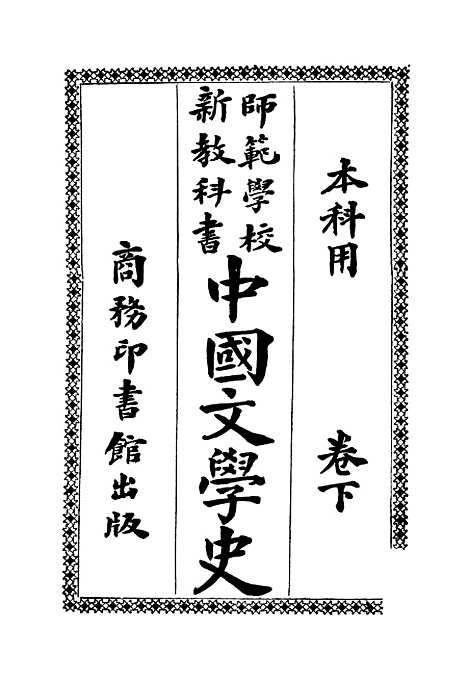 本科用 卷下
師範學校
新教科書
中國文學史
商務印書館出版